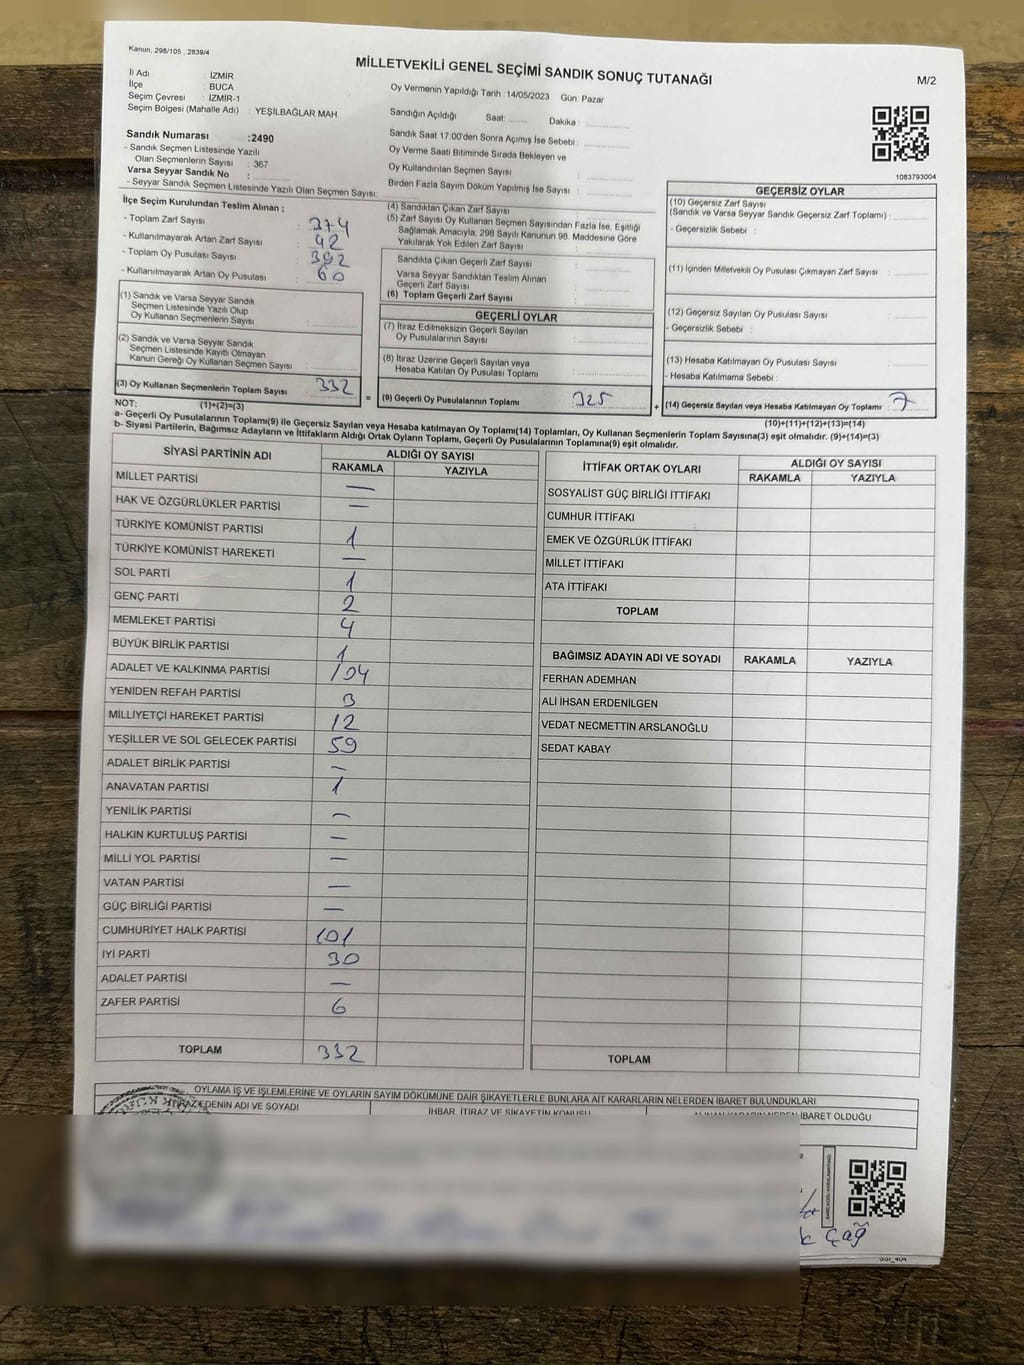 Kanun; 298/105 , 2839/4
MİLLETVEKİLİ GENEL SEÇİMİ SANDIK SONUÇ TUTANAĞI
M/2
İl Adı : İZMİR
İlçe : BUCA
Seçim Çevresi : İZMİR-1
Seçim Bölgesi (Mahalle Adı) : YEŞİLBAĞLAR MAH
Sandık Numarası :2490
- Sandık Seçmen Listesinde Yazılı
Olan Seçmenlerin Sayısı : 367
Varsa Seyyar Sandık No :
- Seyyar Sandık Seçmen Listesinde Yazılı Olan Seçmen Sayısı:
Oy Vermenin Yapıldığı Tarih :14/05/2023 Gün: Pazar
Sandığın Açıldığı Saat: Dakika :
Sandık Saat 17:00'den Sonra Açımış İse Sebebi :
Oy Verme Saati Bitiminde Sırada Bekleyen ve
Oy Kullandırılan Seçmen Sayısı :
Birden Fazla Sayım Döküm Yapılmış İse Sayısı :
1083793004
İlçe Seçim Kurulundan Teslim Alınan ;
- Toplam Zarf Sayısı : 374
- Kullanılmayarak Artan Zarf Sayısı : 42
- Toplam Oy Pusulası Sayısı : 392
- Kullanılmayarak Artan Oy Pusulası : 60
(1) Sandık ve Varsa Seyyar Sandık
Seçmen Listesinde Yazılı Olup
Oy Kullanan Seçmenlerin Sayısı :
(2) Sandık ve Varsa Seyyar Sandık
Seçmen Listesinde Kayıtlı Olmayan
Kanun Gereği Oy Kullanan Seçmen Sayısı :
(3) Oy Kullanan Seçmenlerin Toplam Sayısı : 332
(4) Sandıktan Çıkan Zarf Sayısı :
(5) Zarf Sayısı Oy Kullanan Seçmen Sayısından Fazla İse, Eşitliği
Sağlamak Amacıyla; 298 Sayılı Kanunun 98. Maddesine Göre
Yakılarak Yok Edilen Zarf Sayısı :
Sandıkta Çıkan Geçerli Zarf Sayısı :
Varsa Seyyar Sandıktan Teslim Alınan
Geçerli Zarf Sayısı :
(6) Toplam Geçerli Zarf Sayısı :
GEÇERLİ OYLAR
(7) İtiraz Edilmeksizin Geçerli Sayılan
Oy Pusulalarının Sayısı :
(8) İtiraz Üzerine Geçerli Sayılan veya
Hesaba Katılan Oy Pusulası Toplamı :
= (9) Geçerli Oy Pusulalarının Toplamı : 325
GEÇERSİZ OYLAR
(10) Geçersiz Zarf Sayısı
(Sandık ve Varsa Seyyar Sandık Geçersiz Zarf Toplamı) :
- Geçersizlik Sebebi :
(11) İçinden Milletvekili Oy Pusulası Çıkmayan Zarf Sayısı :
(12) Geçersiz Sayılan Oy Pusulası Sayısı :
- Geçersizlik Sebebi :
(13) Hesaba Katılmayan Oy Pusulası Sayısı :
- Hesaba Katılmama Sebebi :
+ (14) Geçersiz Sayılan veya Hesaba Katılmayan Oy Toplamı : 7
NOT: (1)+(2)=(3)
(10)+(11)+(12)+(13)=(14)
a- Geçerli Oy Pusulalarının Toplamı(9) ile Geçersiz Sayılan veya Hesaba katılmayan Oy Toplamı(14) Toplamları, Oy Kullanan Seçmenlerin Toplam Sayısına(3) eşit olmalıdır. (9)+(14)=(3)
b- Siyasi Partilerin, Bağımsız Adayların ve İttifakların Aldığı Ortak Oyların Toplamı, Geçerli Oy Pusulalarının Toplamına(9) eşit olmalıdır.
SİYASİ PARTİNİN ADI ALDIĞI OY SAYISI
RAKAMLA YAZIYLA
MİLLET PARTİSİ —
HAK VE ÖZGÜRLÜKLER PARTİSİ —
TÜRKİYE KOMÜNİST PARTİSİ 1
TÜRKİYE KOMÜNİST HAREKETİ —
SOL PARTİ 1
GENÇ PARTİ 2
MEMLEKET PARTİSİ 4
BÜYÜK BİRLİK PARTİSİ 1
ADALET VE KALKINMA PARTİSİ 104
YENİDEN REFAH PARTİSİ 3
MİLLİYETÇİ HAREKET PARTİSİ 12
YEŞİLLER VE SOL GELECEK PARTİSİ 59
ADALET BİRLİK PARTİSİ —
ANAVATAN PARTİSİ 1
YENİLİK PARTİSİ —
HALKIN KURTULUŞ PARTİSİ —
MİLLİ YOL PARTİSİ —
VATAN PARTİSİ —
GÜÇ BİRLİĞİ PARTİSİ —
CUMHURİYET HALK PARTİSİ 101
İYİ PARTİ 30
ADALET PARTİSİ —
ZAFER PARTİSİ 6
TOPLAM 332
İTTİFAK ORTAK OYLARI ALDIĞI OY SAYISI
RAKAMLA YAZIYLA
SOSYALİST GÜÇ BİRLİĞİ İTTİFAKI
CUMHUR İTTİFAKI
EMEK VE ÖZGÜRLÜK İTTİFAKI
MİLLET İTTİFAKI
ATA İTTİFAKI
TOPLAM
BAĞIMSIZ ADAYIN ADI VE SOYADI RAKAMLA YAZIYLA
FERHAN ADEMHAN
ALİ İHSAN ERDENİLGEN
VEDAT NECMETTİN ARSLANOĞLU
SEDAT KABAY
TOPLAM
OYLAMA İŞ VE İŞLEMLERİNE VE OYLARIN SAYIM DÖKÜMÜNE DAİR ŞİKAYETLERLE BUNLARA AİT KARARLARIN NELERDEN İBARET BULUNDUKLARI
İTİRAZ EDENİN ADI VE SOYADI İHBAR, İTİRAZ VE ŞİKAYETİN KONUSU ALINAN KARARIN NEDEN İBARET OLDUĞU
Çağ